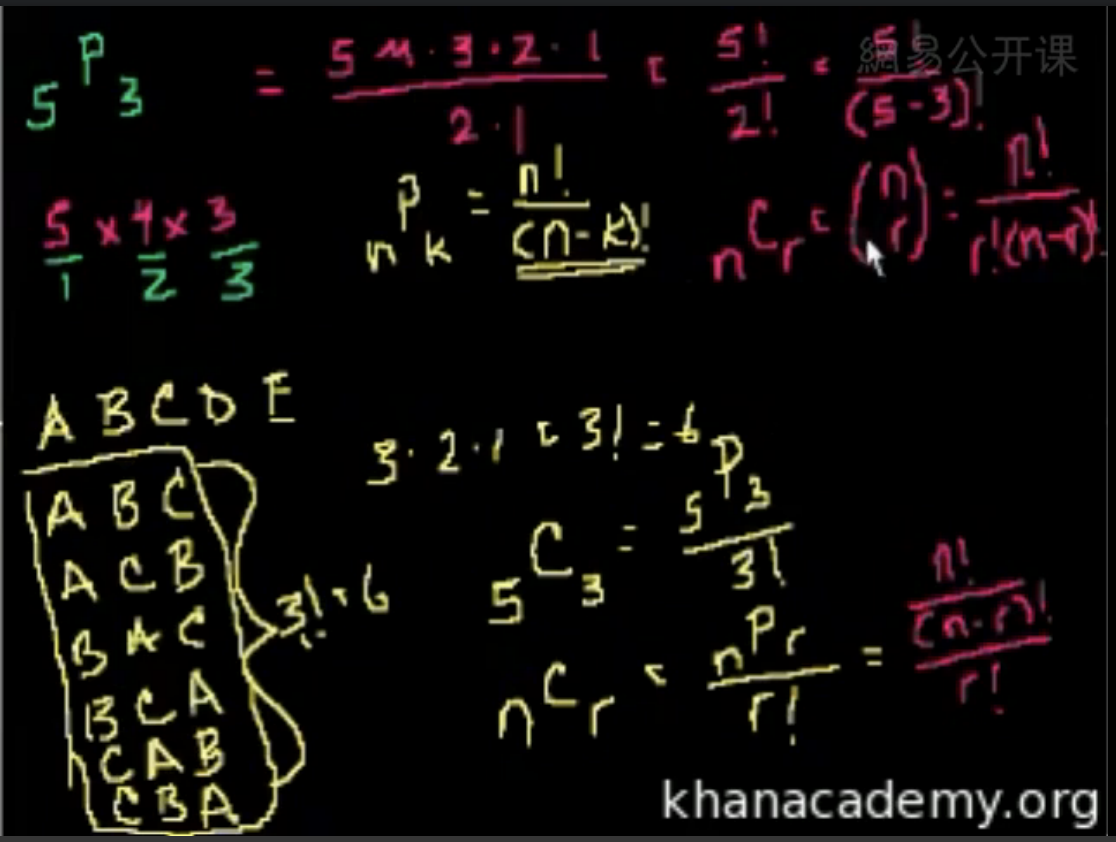 ₅P₃ = 5 4 · 3 · 2 · 1 / 2 · 1 = 5! / 2! = 5! / (5-3)!
網易公开课
5/1 × 4/2 × 3/3
ₙPₖ = n! / (n-k)!
ₙCᵣ = (n r) = n! / r!(n-r)!
A B C D E
3 · 2 · 1 = 3! = 6
A B C
A C B
B A C
B C A
C A B
C B A
3! = 6
₅C₃ = ₅P₃ / 3!
ₙCᵣ = ₙPᵣ / r! = n! / (n-r)! / r!
khanacademy.org